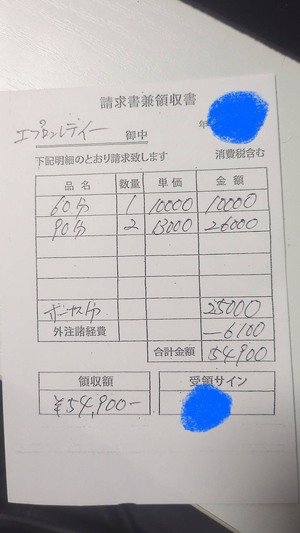 請求書兼領収書
年
エプロンレディー 御中
下記明細のとおり請求致します 消費税含む
品名 数量 単価 金額
60分 1 10000 10000
90分 2 13000 26000
ボーナス分 25000
外注諸経費 -6100
合計金額 54900
領収額 受領サイン
¥54,900-